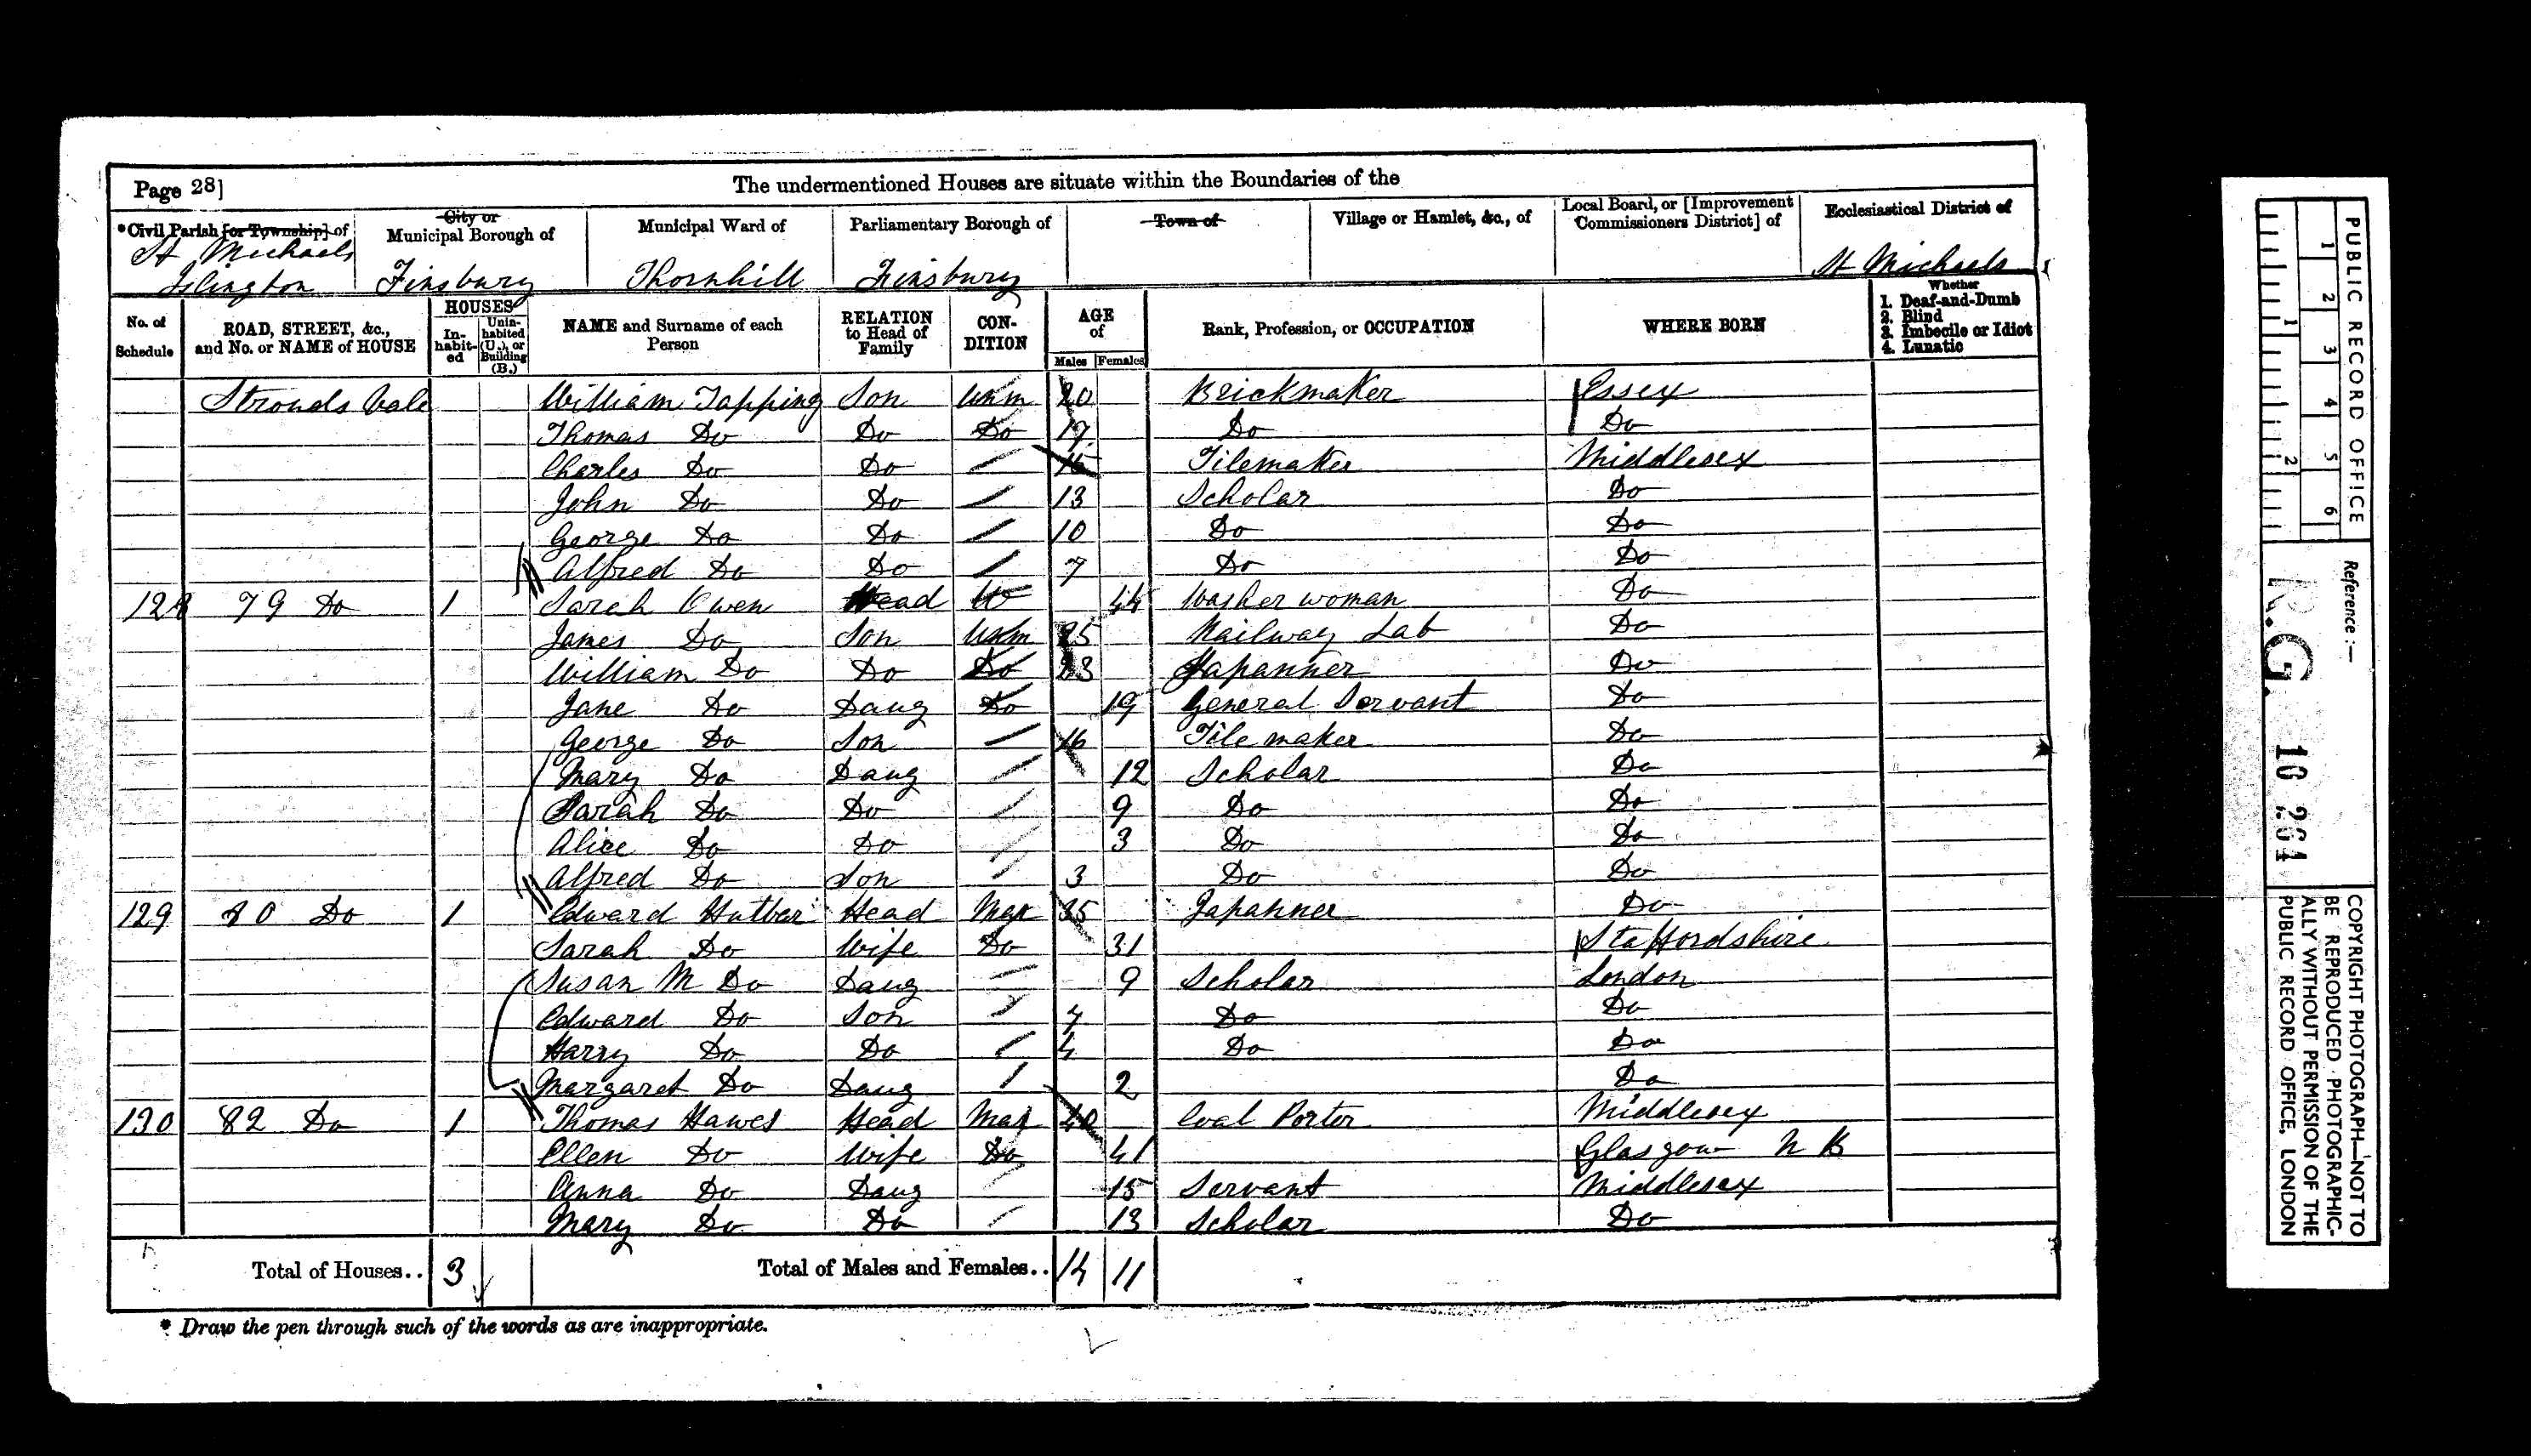 Page 28]
The undermentioned Houses are situate within the Boundaries of the
*Civil Parish [or Township] of
City or Municipal Borough of
Municipal Ward of
Parliamentary Borough of
Town of
Village or Hamlet, &c., of
Local Board, or [Improvement Commissioners District] of
Ecclesiastical District of
St Michaels Islington
Finsbury
Thornhill
Finsbury
St Michaels
No. of Schedule
ROAD, STREET, &c., and No. or NAME of HOUSE
HOUSES
In-habit-ed
Unin-habited (U.), or Building (B.)
NAME and Surname of each Person
RELATION to Head of Family
CON-DITION
AGE of
Males
Females
Rank, Profession, or OCCUPATION
WHERE BORN
Whether
1. Deaf-and-Dumb
2. Blind
3. Imbecile or Idiot
4. Lunatic
Strouds Vale William Tapping Son Unm 20 Brickmaker Essex
Thomas Do Do Do 19 Do Do
Charles Do Do 15 Tilemaker Middlesex
John Do Do 13 Scholar Do
George Do Do 10 Do Do
Alfred Do Do 7 Do Do
128 79 Do 1 Sarah Owen Head W 44 Washer woman Do
James Do Son Unm 25 Railway Lab Do
William Do Do Do 23 Japanner Do
Jane Do Daug Do 19 General Servant Do
George Do Son 16 Tile maker Do
Mary Do Daug 12 Scholar Do
Sarah Do Do 9 Do Do
Alice Do Do 3 Do Do
Alfred Do Son 3 Do Do
129 80 Do 1 Edward Head Mar 35 Japanner Do
Sarah Do Wife Do 31 Staffordshire
Susan M Do Daug 9 Scholar London
Edward Do Son Do Do
Harry Do Do 4 Do Do
Margaret Do Daug 2 Do
130 82 Do 1 Thomas Hawes Head Mar 40 Coal Porter Middlesex
Ellen Do Wife Do 41 Glasgow N B
Anna Do Daug 15 Servant Middlesex
Mary Do Do 13 Scholar Do
Total of Houses.. 3
Total of Males and Females.. 14 11
* Draw the pen through such of the words as are inappropriate.
PUBLIC RECORD OFFICE
1 2 3 4 5 6
1 2
Reference :—
R.G. 10 264
COPYRIGHT PHOTOGRAPH—NOT TO
BE REPRODUCED PHOTOGRAPHIC-
ALLY WITHOUT PERMISSION OF THE
PUBLIC RECORD OFFICE, LONDON